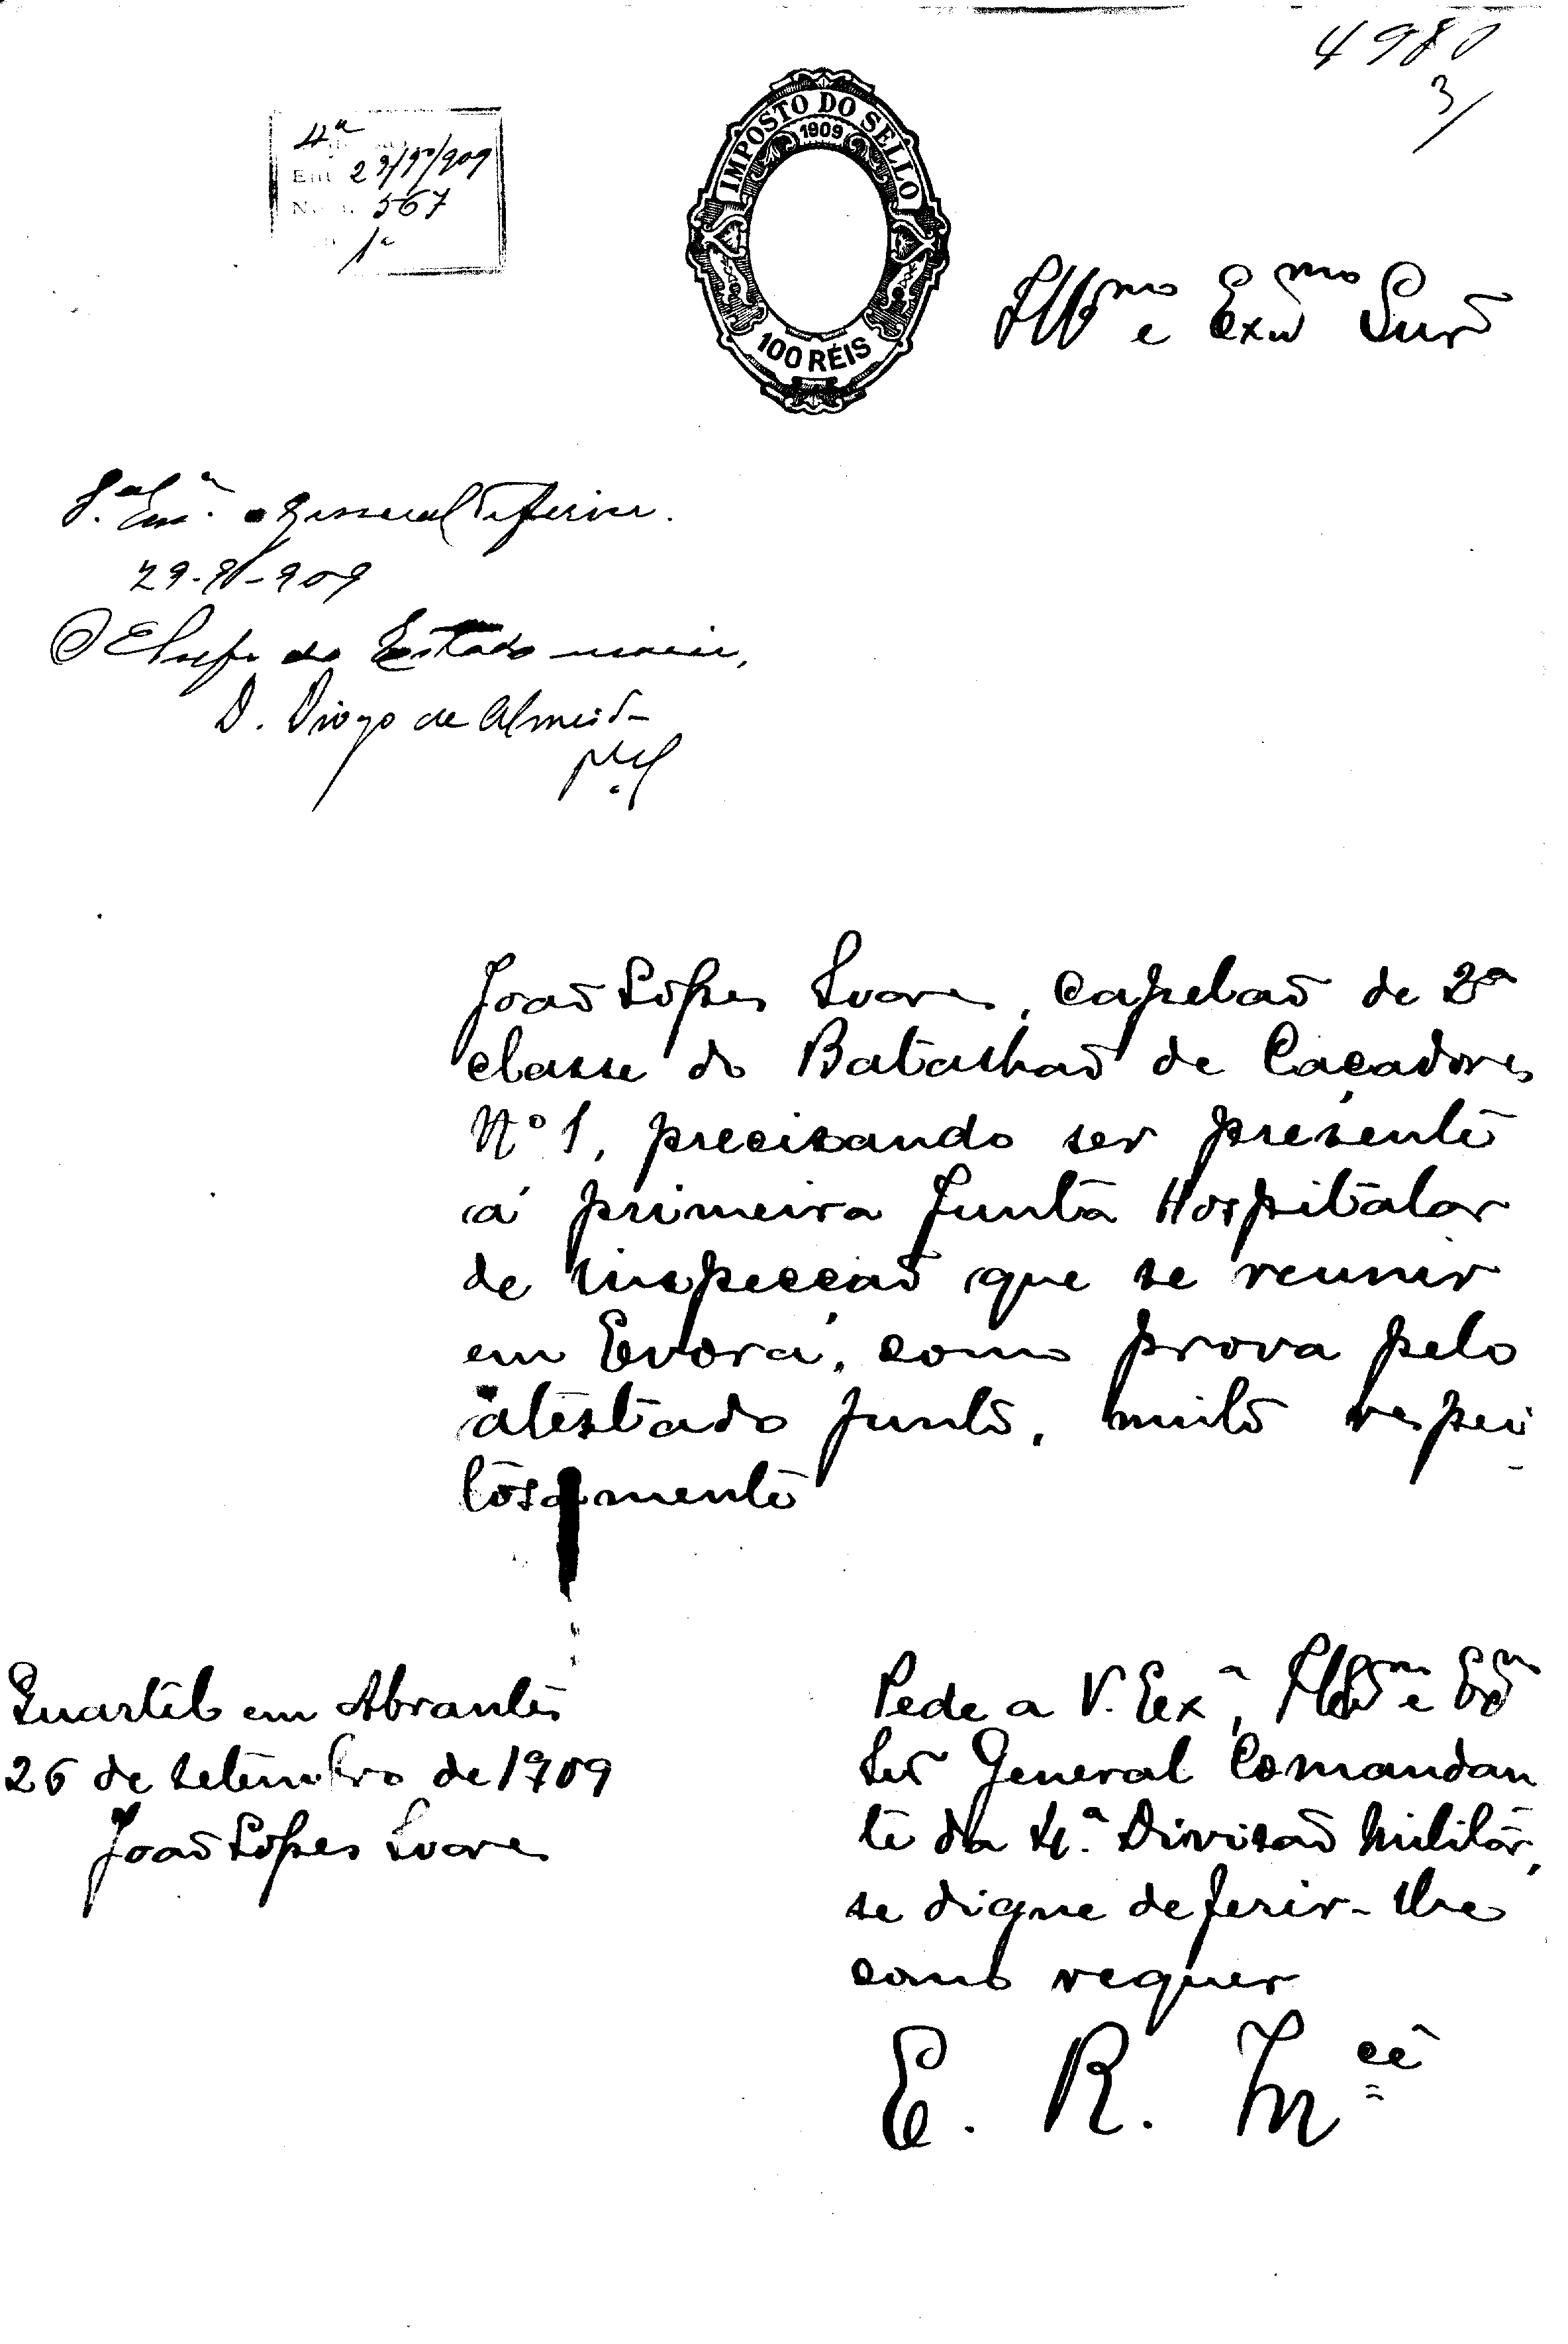 4980
3
4ª
Ent
567
1ª
IMPOSTO DO SELLO
1909
100 RÉIS
Illmo e Exmo Snr
S. Exª o General deferiu.
29-9-909
O Chefe do Estado maior,
D. Diogo de Almeida
João Lopes Soares, capelão de 2ª
classe do Batalhão de Caçadores
Nº 1, precisando ser presente
á primeira Junta Hospitalar
de inspecção que se reunir
em Evora, como prova pelo
atestado junto, muito respei
tosamente
Quartel em Abrantes
26 de setembro de 1909
João Lopes Soares
Pede a V. Exª, Illmo e Exmo
Snr General Comandan
te da 4.ª Divisão Militar,
se digne deferir-lhe
como requer
E. R. Mcê